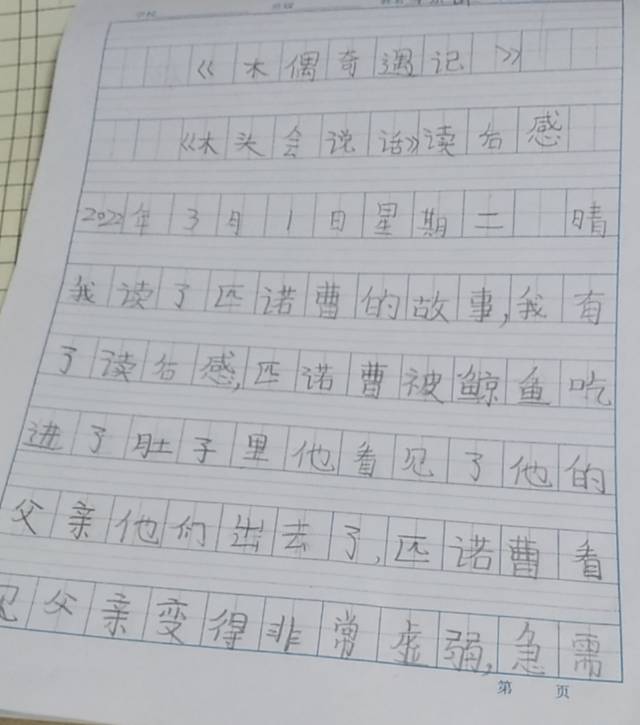 《木偶奇遇记》
《木头会说话》读右感
2022年3月1日星期二 晴
我读了匹诺曹的故事,我有
了读右感,匹诺曹被鲸鱼吃
进了肚子里他看见了他的
父亲他们出去了,匹诺曹看
见父亲变得非常虚弱,急需
第 页